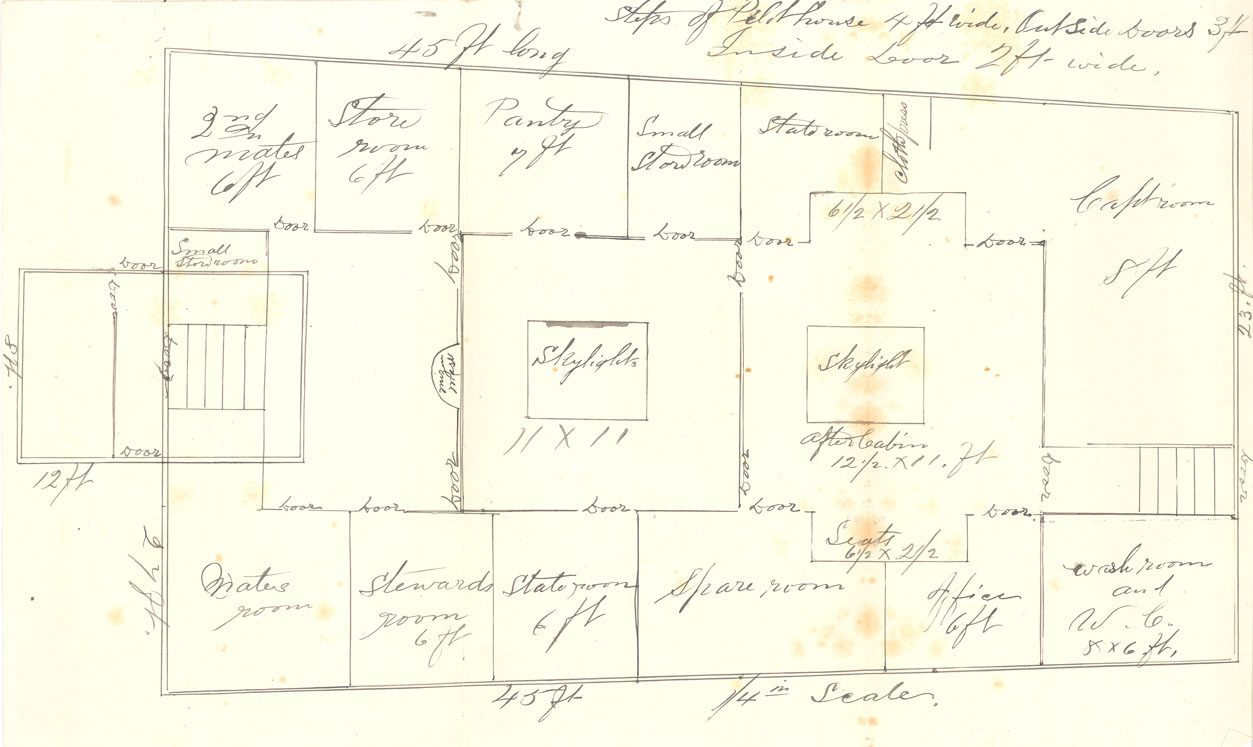 Steps of Pilothouse 4 ft wide, Outside Doors 3 ft
Inside Door 2 ft wide,
45 ft long
2nd
mates
6 ft
Store
room
6 ft
Pantry
7 ft
Small
Storeroom
Stateroom
6 1/2 X 2 1/2
Capt room
8 ft
23. ft.
Door
Door
Door
Door
Door
Door
Small
Storeroom
Door
Door
Door
Door
Door
8 ft.
Skylights
11 X 11
Skylight
After Cabin
12 1/2. X 11. ft
Door
12 ft
Door
Door
Door
Door
Door
Door
Door
Door
Door
Door
Seats
6 1/2 X 2 1/2
Mates
room
Stewards
room
6 ft
Stateroom
6 ft
Spare room
Office
6 ft
wash room
and
W. C.
8 X 6 ft.
45 ft
1/4 in Scale.